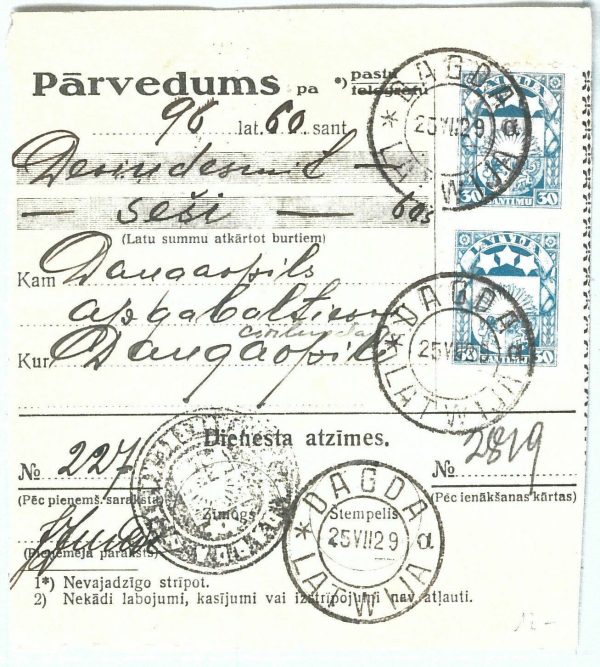 Pārvedums pa *) pastu
telegrafu
96 lat. 60 sant.
Deviņdesmit —
— seši — 60s
(Latu summu atkārtot burtiem)
Kam Daugavpils
apgabaltiesa
Kur Daugavpils
Dienesta atzīmes.
№ 227
(Pēc pieņemš. saraksta)
№ 2819
(Pēc ienākšanas kārtas)
Zīmogs
Stempelis
(Pieņēmēja paraksts)
1*) Nevajadzīgo strīpot.
2) Nekādi labojumi, kasījumi vai izstrīpojumi nav atļauti.
LATVIJA
30 SANTIMU 30
LATVIJA
30 SANTIMU 30
* DAGDA a
25 VII 29
LATWIJA
* DAGDA a
25 VII 29
LATWIJA
* DAGDA a
25 VII 29
LATWIJA